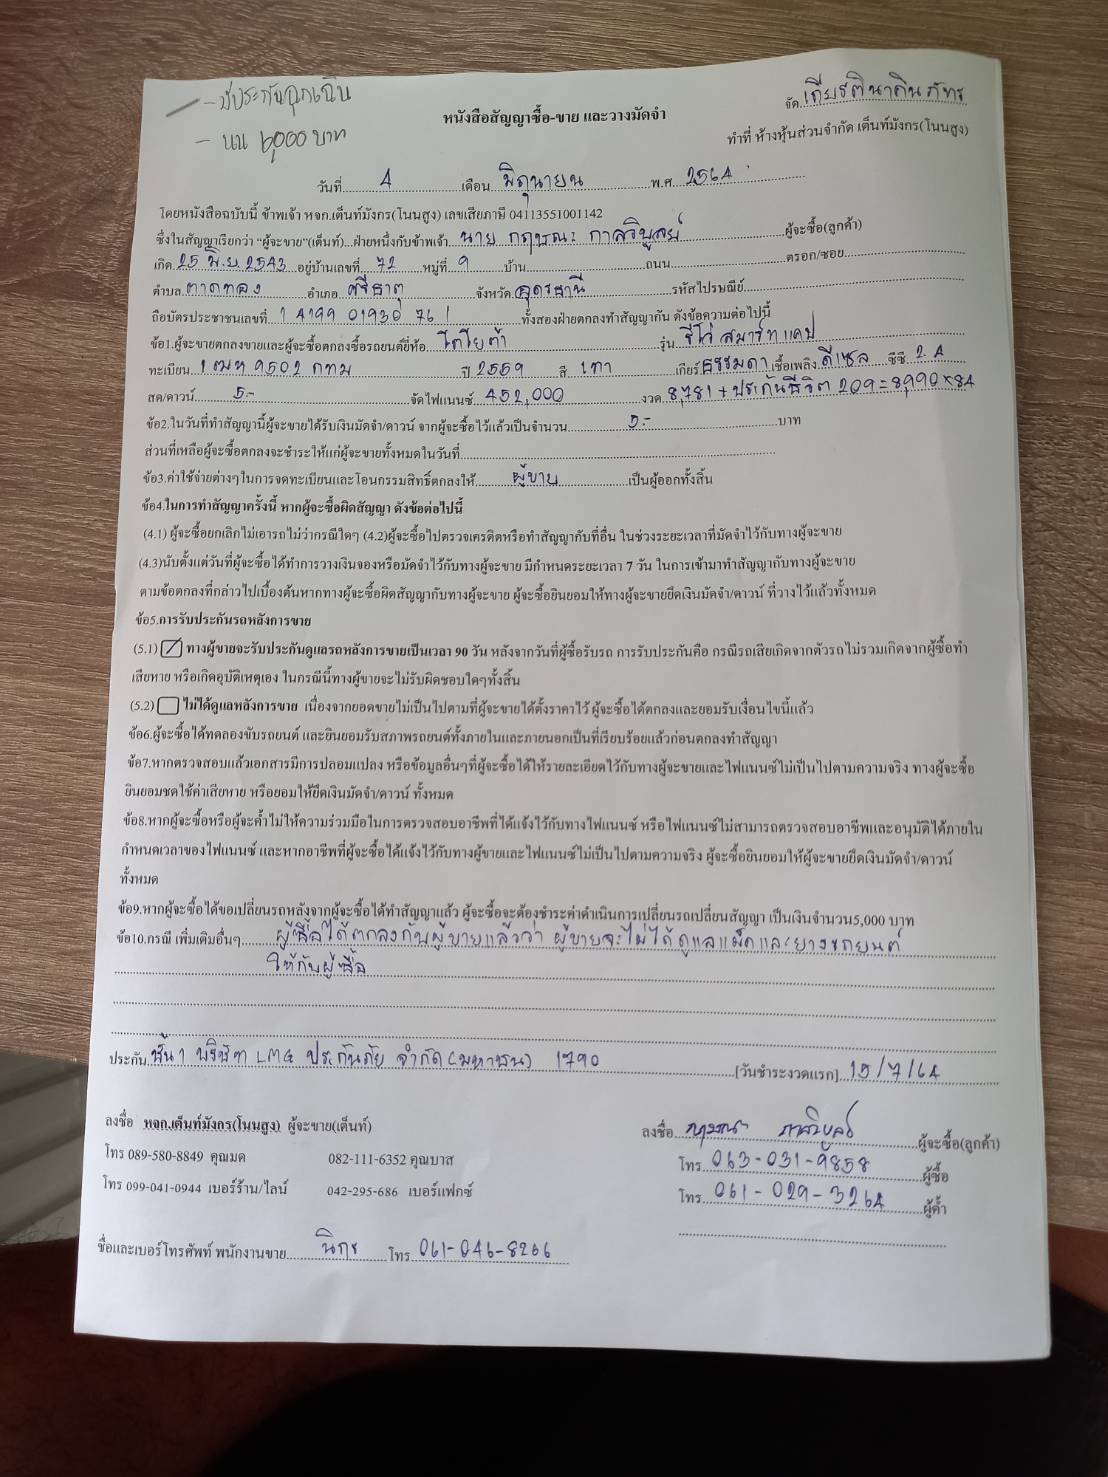 - มีประกันฉุกเฉิน
- นน 6,000 บาท
จัด เกียรตินาคินภัทร
หนังสือสัญญาซื้อ-ขาย และวางมัดจำ
ทำที่ ห้างหุ้นส่วนจำกัด เต็นท์มังกร(โนนสูง)
วันที่ 4 เดือน มิถุนายน พ.ศ. 2564
โดยหนังสือฉบับนี้ ข้าพเจ้า หจก.เต็นท์มังกร(โนนสูง) เลขเสียภาษี 04113551001142
ซึ่งในสัญญาเรียกว่า "ผู้จะขาย"(เต็นท์)...ฝ่ายหนึ่งกับข้าพเจ้า นาย กฤษณะ กาสวิบูลย์ ผู้จะซื้อ(ลูกค้า)
เกิด 25 มิ.ย. 2543 อยู่บ้านเลขที่ 72 หมู่ที่ 9 บ้าน ถนน ตรอก/ซอย
ตำบล ตาดทอง อำเภอ ศรีธาตุ จังหวัด อุดรธานี รหัสไปรษณีย์
ถือบัตรประชาชนเลขที่ 1 4199 01930 76 1 ทั้งสองฝ่ายตกลงทำสัญญากัน ดังข้อความต่อไปนี้
ข้อ1.ผู้จะขายตกลงขายและผู้จะซื้อตกลงซื้อรถยนต์ยี่ห้อ โตโยต้า รุ่น รีโว่ สมาร์ทแคป
ทะเบียน 1 ฒห 9502 กทม ปี 2559 สี เทา เกียร์ ธรรมดา เชื้อเพลิง ดีเซล ซีซี. 2.4
สด/ดาวน์ 5.- จัดไฟแนนซ์ 452,000 งวด 8,781 + ประกันชีวิต 209 = 8,990 x 84
ข้อ2.ในวันที่ทำสัญญานี้ผู้จะขายได้รับเงินมัดจำ/ดาวน์ จากผู้จะซื้อไว้แล้วเป็นจำนวน 5.- บาท
ส่วนที่เหลือผู้จะซื้อตกลงจะชำระให้แก่ผู้จะขายทั้งหมดในวันที่
ข้อ3.ค่าใช้จ่ายต่างๆในการจดทะเบียนและโอนกรรมสิทธิ์ตกลงให้ ผู้ขาย เป็นผู้ออกทั้งสิ้น
ข้อ4.ในการทำสัญญาครั้งนี้ หากผู้จะซื้อผิดสัญญา ดังข้อต่อไปนี้
(4.1) ผู้จะซื้อยกเลิกไม่เอารถไม่ว่ากรณีใดๆ (4.2)ผู้จะซื้อไปตรวจเครดิตหรือทำสัญญากับที่อื่น ในช่วงระยะเวลาที่มัดจำไว้กับทางผู้จะขาย
(4.3)นับตั้งแต่วันที่ผู้จะซื้อได้ทำการวางเงินจองหรือมัดจำไว้กับทางผู้จะขาย มีกำหนดระยะเวลา 7 วัน ในการเข้ามาทำสัญญากับทางผู้จะขาย
ตามข้อตกลงที่กล่าวไปเบื้องต้นหากทางผู้จะซื้อผิดสัญญากับทางผู้จะขาย ผู้จะซื้อยินยอมให้ทางผู้จะขายยึดเงินมัดจำ/ดาวน์ ที่วางไว้แล้วทั้งหมด
ข้อ5.การรับประกันรถหลังการขาย
(5.1) ทางผู้ขายจะรับประกันดูแลรถหลังการขายเป็นเวลา 90 วัน หลังจากวันที่ผู้ซื้อรับรถ การรับประกันคือ กรณีรถเสียเกิดจากตัวรถไม่รวมเกิดจากผู้ซื้อทำ
เสียหาย หรือเกิดอุบัติเหตุเอง ในกรณีนี้ทางผู้ขายจะไม่รับผิดชอบใดๆทั้งสิ้น
(5.2) ไม่ได้ดูแลหลังการขาย เนื่องจากยอดขายไม่เป็นไปตามที่ผู้จะขายได้ตั้งราคาไว้ ผู้จะซื้อได้ตกลงและยอมรับเงื่อนไขนี้แล้ว
ข้อ6.ผู้จะซื้อได้ทดลองขับรถยนต์ และยินยอมรับสภาพรถยนต์ทั้งภายในและภายนอกเป็นที่เรียบร้อยแล้วก่อนตกลงทำสัญญา
ข้อ7.หากตรวจสอบแล้วเอกสารมีการปลอมแปลง หรือข้อมูลอื่นๆที่ผู้จะซื้อได้ให้รายละเอียดไว้กับทางผู้จะขายและไฟแนนซ์ไม่เป็นไปตามความจริง ทางผู้จะซื้อ
ยินยอมชดใช้ค่าเสียหาย หรือยอมให้ยึดเงินมัดจำ/ดาวน์ ทั้งหมด
ข้อ8.หากผู้จะซื้อหรือผู้จะค้ำไม่ให้ความร่วมมือในการตรวจสอบอาชีพที่ได้แจ้งไว้กับทางไฟแนนซ์ หรือไฟแนนซ์ไม่สามารถตรวจสอบอาชีพและอนุมัติได้ภายใน
กำหนดเวลาของไฟแนนซ์ และหากอาชีพที่ผู้จะซื้อได้แจ้งไว้กับทางผู้ขายและไฟแนนซ์ไม่เป็นไปตามความจริง ผู้จะซื้อยินยอมให้ผู้จะขายยึดเงินมัดจำ/ดาวน์
ทั้งหมด
ข้อ9.หากผู้จะซื้อได้ขอเปลี่ยนรถหลังจากผู้จะซื้อได้ทำสัญญาแล้ว ผู้จะซื้อจะต้องชำระค่าดำเนินการเปลี่ยนรถเปลี่ยนสัญญา เป็นเงินจำนวน5,000 บาท
ข้อ10.กรณี เพิ่มเติมอื่นๆ ผู้ซื้อได้ตกลงกับผู้ขายแล้วว่า ผู้ขายจะไม่ได้ดูแลแม็คและยางรถยนต์
ให้กับผู้ซื้อ
ประกัน ชั้น 1 บริษัท LMG ประกันภัย จำกัด (มหาชน) 1790 [วันชำระงวดแรก] 15/7/64
ลงชื่อ หจก.เต็นท์มังกร(โนนสูง) ผู้จะขาย(เต็นท์)
ลงชื่อ กฤษณะ กาสวิบูลย์ ผู้จะซื้อ(ลูกค้า)
โทร 089-580-8849 คุณมด 082-111-6352 คุณบาส
โทร 063-031-9858 ผู้ซื้อ
โทร 099-041-0944 เบอร์ร้าน/ไลน์ 042-295-686 เบอร์แฟกซ์
โทร 061-029-3264 ผู้ค้ำ
ชื่อและเบอร์โทรศัพท์ พนักงานขาย นิกร โทร 061-046-8266